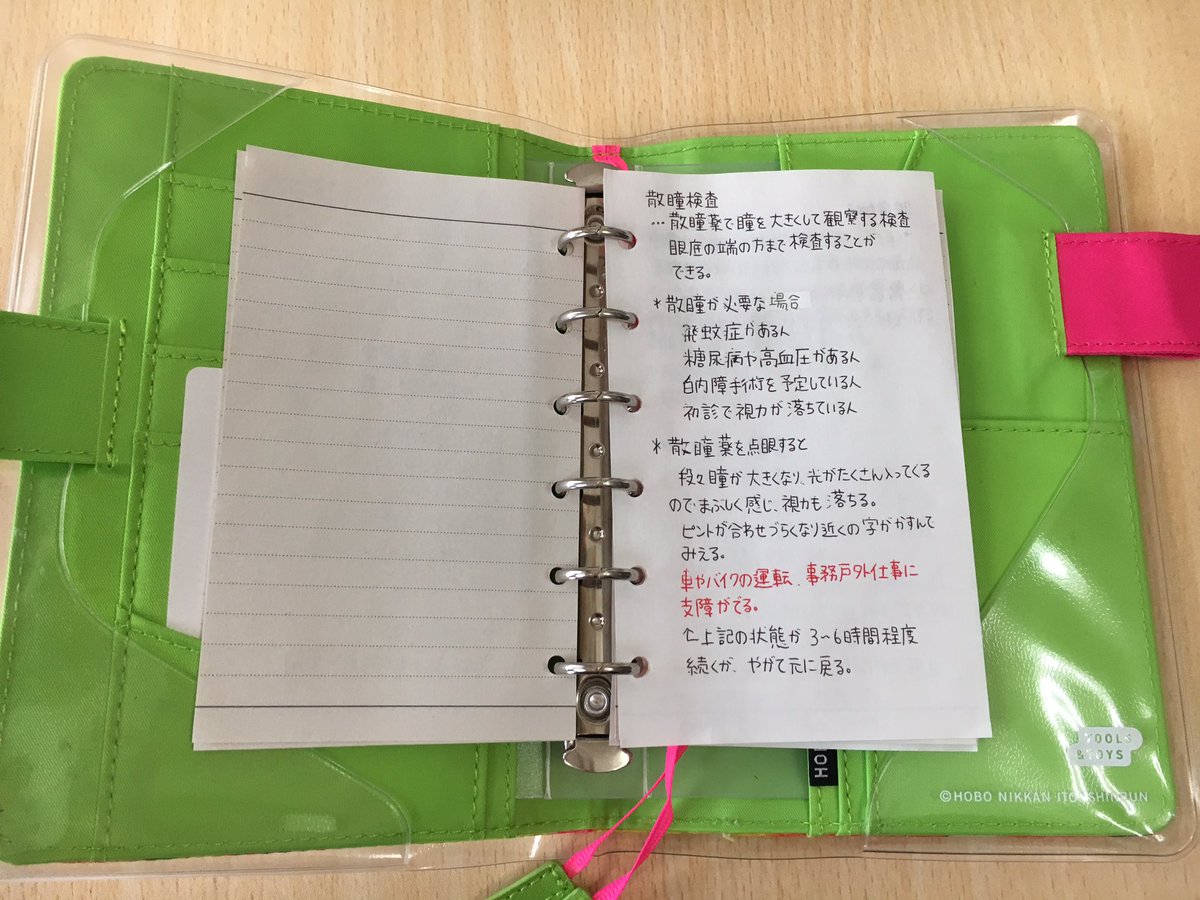 散瞳検査
…散瞳薬で瞳を大きくして観察する検査
眼底の端の方まで検査することが
できる。
*散瞳が必要な場合
飛蚊症がある人
糖尿病や高血圧がある人
白内障手術を予定している人
初診で視力が落ちている人
*散瞳薬を点眼すると
段々瞳が大きくなり、光がたくさん入ってくる
のでまぶしく感じ、視力も落ちる。
ピントが合わせづらくなり近くの字がかすんで
みえる。
車やバイクの運転、事務戸外仕事に
支障がでる。
←上記の状態が3~6時間程度
続くが、やがて元に戻る。
TOOLS
&TOYS
©HOBO NIKKAN ITOI SHINBUN
HO